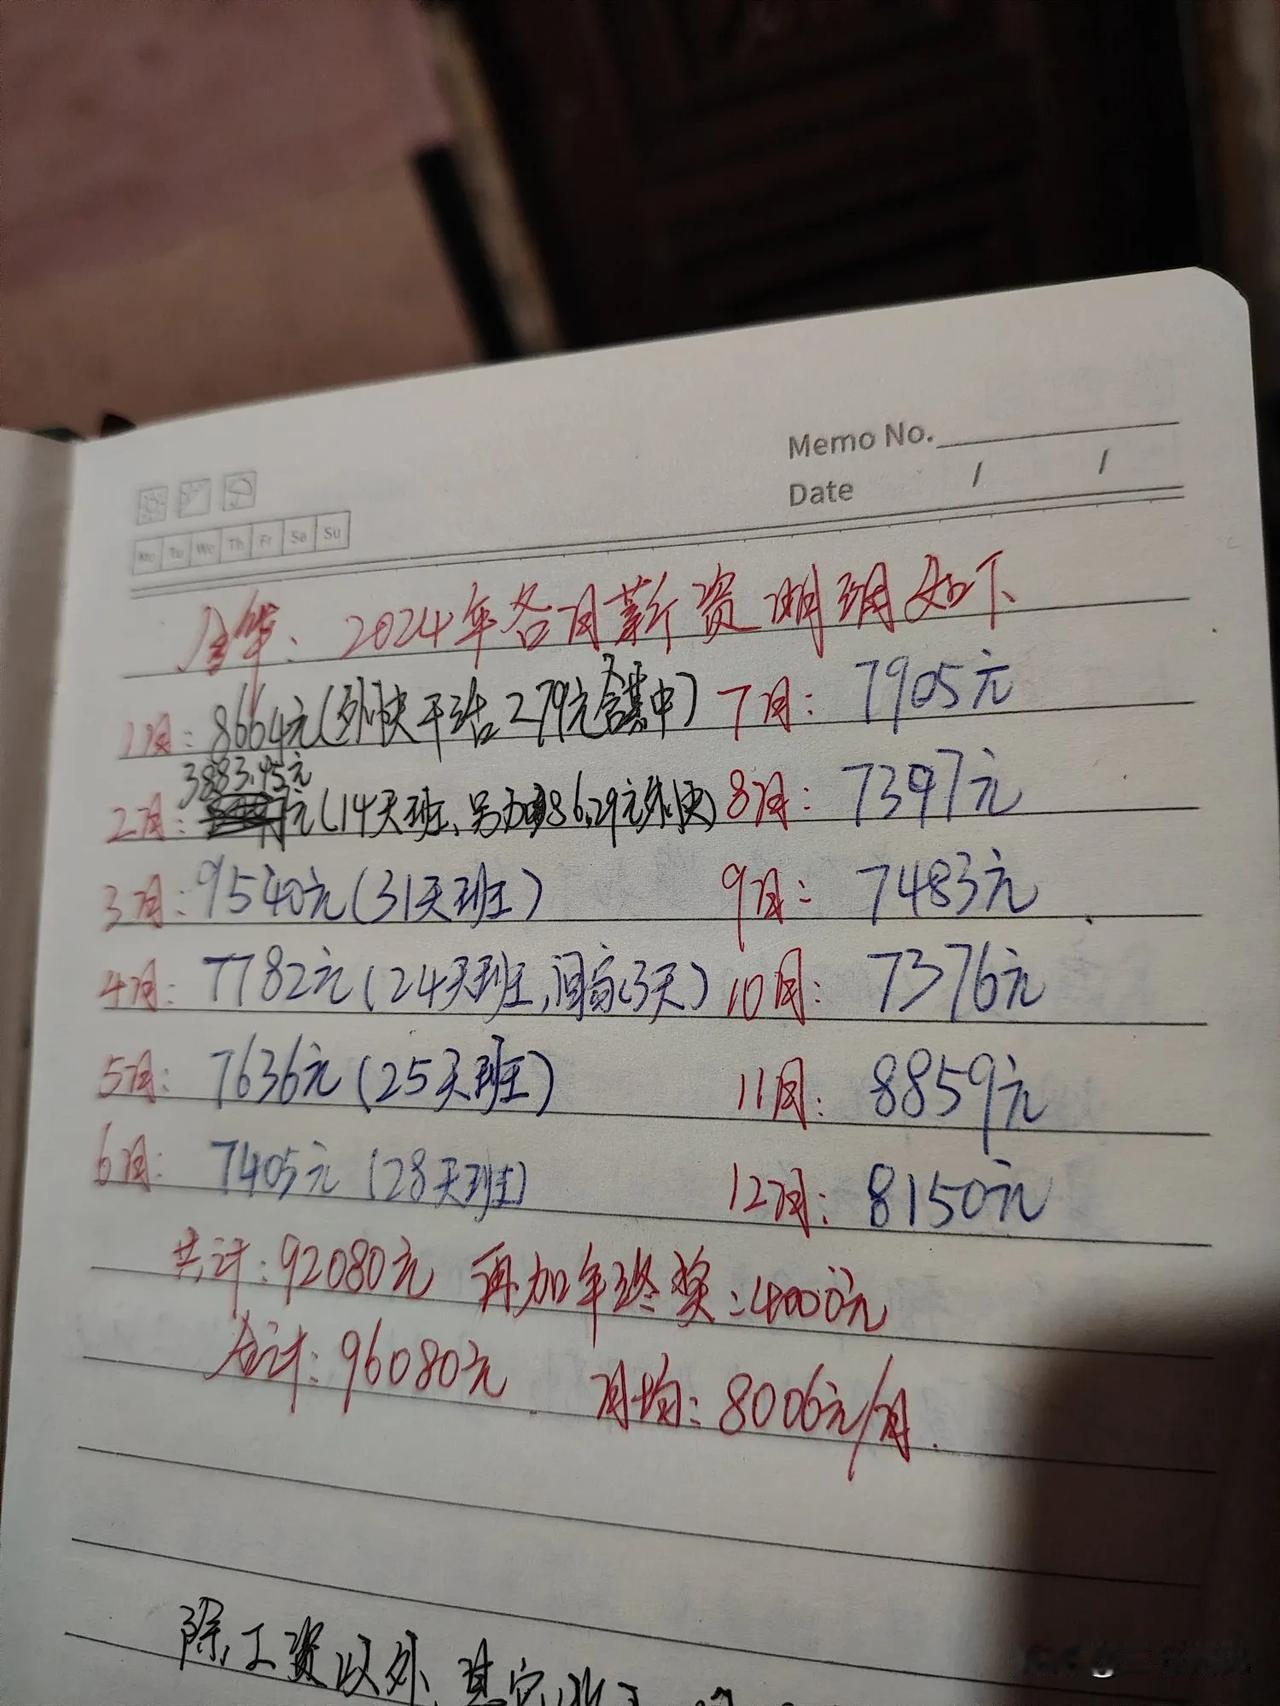 Memo No.
Date / /
Mo Tu We Th Fr Sa Su
金华：2024年各月薪资明细如下
1月：8664元(外快干活279元含其中) 7月：7905元
3883.45元
2月：元(14天班、另加86.29元外快) 8月：7397元
3月：9540元(31天班) 9月：7483元
4月：7782元(24天班,回家3天) 10月：7376元
5月：7636元(25天班) 11月：8859元
6月：7405元(28天班) 12月：8150元
共计：92080元 再加年终奖：4000元
合计：96080元. 月均：8006元/月.
除工资以外,其它收入